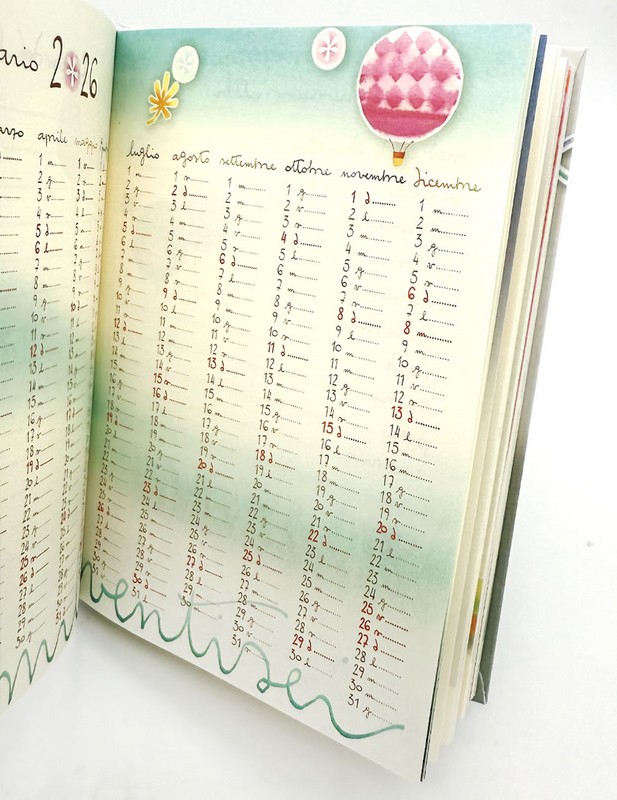 ario 2026
aprile maggio
1 m
2 g
3 v
4 s
5 d
6 l
7 m
8 m
9 g
10 v
11 s
12 d
13 l
14 m
15 m
16 g
17 v
18 s
19 d
20 l
21 m
22 m
23 g
24 v
25 s
26 d
27 l
28 m
29 m
30 g
luglio agosto settembre ottobre novembre dicembre
1 m 1 s 1 m 1 g 1 d 1 m
2 g 2 d 2 m 2 v 2 l 2 m
3 v 3 l 3 g 3 s 3 m 3 g
4 s 4 m 4 v 4 d 4 m 4 v
5 d 5 m 5 s 5 l 5 g 5 s
6 l 6 g 6 d 6 m 6 v 6 d
7 m 7 v 7 l 7 m 7 s 7 l
8 m 8 s 8 m 8 g 8 d 8 m
9 g 9 d 9 m 9 v 9 l 9 m
10 v 10 l 10 g 10 s 10 m 10 g
11 s 11 m 11 v 11 d 11 m 11 v
12 d 12 m 12 s 12 l 12 g 12 s
13 l 13 g 13 d 13 m 13 v 13 d
14 m 14 v 14 l 14 m 14 s 14 l
15 m 15 s 15 m 15 g 15 d 15 m
16 g 16 d 16 m 16 v 16 l 16 m
17 v 17 l 17 g 17 s 17 m 17 g
18 s 18 m 18 v 18 d 18 m 18 v
19 d 19 m 19 s 19 l 19 g 19 s
20 l 20 g 20 d 20 m 20 v 20 d
21 m 21 v 21 l 21 m 21 s 21 l
22 m 22 s 22 m 22 g 22 d 22 m
23 g 23 d 23 m 23 v 23 l 23 m
24 v 24 l 24 g 24 s 24 m 24 g
25 s 25 m 25 v 25 d 25 m 25 v
26 d 26 m 26 s 26 l 26 g 26 s
27 l 27 g 27 d 27 m 27 v 27 d
28 m 28 v 28 l 28 m 28 s 28 l
29 m 29 s 29 m 29 g 29 d 29 m
30 g 30 d 30 m 30 v 30 l 30 m
31 v 31 l 31 s 31 g
ventisei